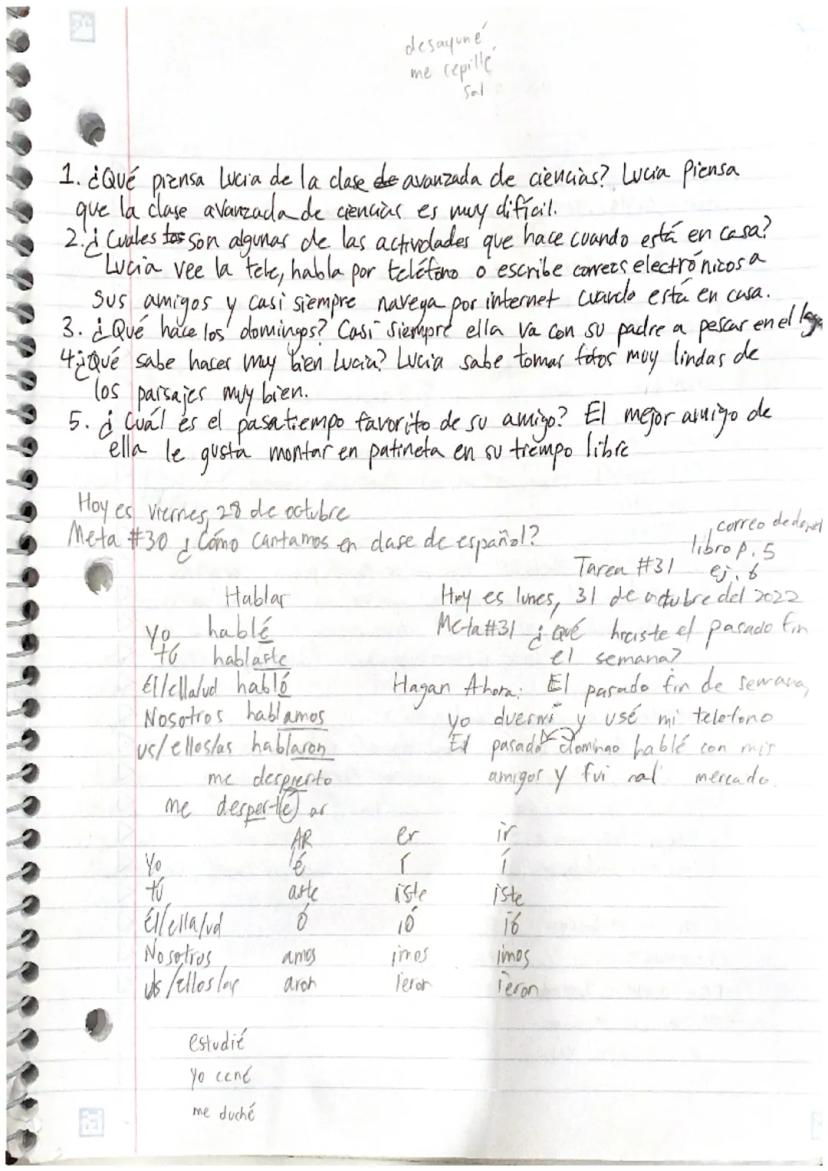 desayuné
me cepillé
sal
1. ¿Qué piensa Lucia de la clase de avanzada de ciencias? Lucia Piensa
que la clase avanzada de ciencias es muy difícil.
2. ¿Cuales las son algunas de las activdades que hace cuando está en casa?
Lucia vee la tele, habla por teléfono o escribe correos electrónicos a
sus amigos y casi siempre navega por internet cuando está en casa.
3. ¿Qué hace los domingos? Casi siempre ella va con su padre a pescar en el lago
4. ¿Qué sabe hacer muy bien Lucia? Lucia sabe tomar fotos muy lindas de
los paisajes muy bien.
5. ¿Cuál es el pasatiempo favorito de su amigo? El mejor amigo de
ella le gusta montar en patineta en su tiempo libre
Hoy es viernes, 28 de octubre
Meta #30 ¿Cómo cantamos en clase de español?
correo de
libro p. 5
Tarea #31 ej. 6
Hablar
Yo hablé
tú hablaste
Él/ella/ud habló
Nosotros hablamos
us/ellos/as hablaron
me despierto
me desperté ar
Hoy es lunes, 31 de octubre del 2022
Meta #31 ¿Qué hiciste el pasado fin
el semana?
Hagan Ahora: El pasado fin de semana,
yo duermí y usé mi telefono
El pasado domingo hablé con mis
amigos y fui al mercado.
AR er ir
Yo é í í
tú aste iste iste
Él/ella/ud ó ió ió
Nosotros amos imos imos
us/ellos/as aron ieron ieron
estudié
yo cené
me duché